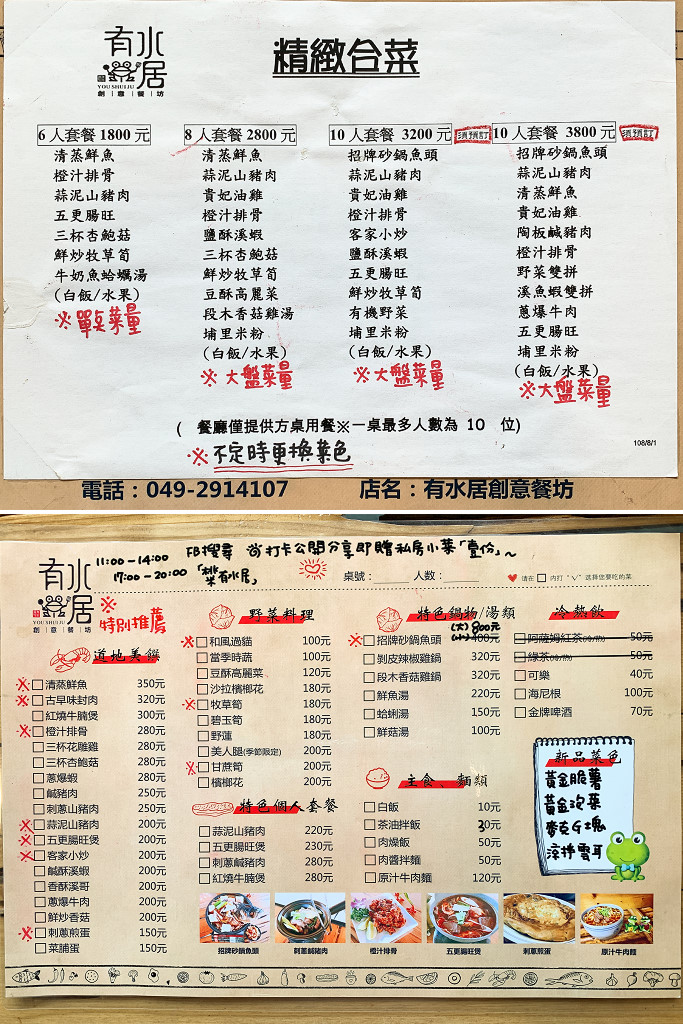 有水居
YOU SHUIJU
創意餐坊
精緻合菜
6 人套餐 1800 元
清蒸鮮魚
橙汁排骨
蒜泥山豬肉
五更腸旺
三杯杏鮑菇
鮮炒牧草筍
牛奶魚蛤蠣湯
(白飯/水果)
※單點菜量
8 人套餐 2800 元
清蒸鮮魚
蒜泥山豬肉
貴妃油雞
橙汁排骨
鹽酥溪蝦
三杯杏鮑菇
鮮炒牧草筍
豆酥高麗菜
段木香菇雞湯
埔里米粉
(白飯/水果)
※大盤菜量
10 人套餐 3200 元
須預訂
招牌砂鍋魚頭
蒜泥山豬肉
貴妃油雞
橙汁排骨
客家小炒
鹽酥溪蝦
五更腸旺
鮮炒牧草筍
有機野菜
埔里米粉
(白飯/水果)
※大盤菜量
10 人套餐 3800 元
須預訂
招牌砂鍋魚頭
蒜泥山豬肉
清蒸鮮魚
貴妃油雞
陶板鹹豬肉
橙汁排骨
野菜雙拼
溪魚蝦雙拼
蔥爆牛肉
五更腸旺
埔里米粉
(白飯/水果)
※大盤菜量
( 餐廳僅提供方桌用餐※一桌最多人數為 10 位)
108/8/1
※不定時更換菜色
電話：049-2914107 店名：有水居創意餐坊
有水居
YOU SHUIJU
創意餐坊
11:00-14:00
17:00-20:00
FB搜尋 打卡公開分享即贈私房小菜「壹份」~
有水居」
桌號： 人數：
請在 □ 內打 "√" 選擇您要吃的菜
※特別推薦
道地美饌
※ □ 清蒸鮮魚 350元
※ □ 古早味封肉 320元
□ 紅燒牛腩煲 300元
※ □ 橙汁排骨 280元
□ 三杯花雕雞 280元
□ 三杯杏鮑菇 280元
□ 蔥爆蝦 280元
□ 鹹豬肉 250元
□ 刺蔥山豬肉 250元
※ □ 蒜泥山豬肉 200元
※ □ 五更腸旺煲 200元
※ □ 客家小炒 200元
□ 鹹酥溪蝦 200元
□ 香酥溪哥 200元
□ 蔥爆牛肉 200元
□ 鮮炒香菇 200元
※ □ 刺蔥煎蛋 150元
□ 菜脯蛋 150元
野菜料理
※ □ 和風過貓 100元
□ 當季時蔬 100元
□ 豆酥高麗菜 120元
□ 沙拉檳榔花 180元
※ □ 牧草筍 180元
□ 碧玉筍 180元
□ 野蓮 180元
□ 美人腿(季節限定) 200元
※ □ 甘蔗筍 200元
□ 檳榔花 200元
特色個人套餐
□ 蒜泥山豬肉 220元
□ 五更腸旺煲 230元
□ 刺蔥鹹豬肉 280元
□ 紅燒牛腩煲 280元
特色鍋物/湯類
(大) 800元
※ □ 招牌砂鍋魚頭 (小) 400元
□ 剝皮辣椒雞鍋 320元
□ 段木香菇雞鍋 320元
□ 鮮魚湯 220元
□ 蛤蜊湯 150元
□ 鮮菇湯 100元
主食、麵類
□ 白飯 10元
□ 茶油拌飯 30元
□ 肉燥飯 50元
□ 肉醬拌麵 50元
□ 原汁牛肉麵 120元
冷熱飲
□ 阿薩姆紅茶(冷/熱) 50元
□ 綠茶(冷/熱) 50元
□ 可樂 40元
□ 海尼根 100元
□ 金牌啤酒 70元
新品菜色
黃金脆薯
黃金泡菜
麥克雞塊
涼拌雲耳
招牌砂鍋魚頭
刺蔥鹹豬肉
橙汁排骨
五更腸旺煲
刺蔥煎蛋
原汁牛肉麵